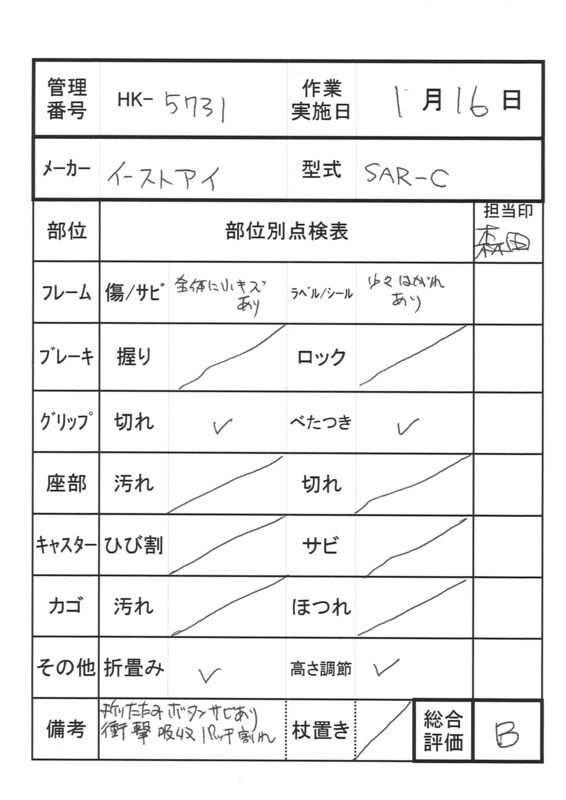 管理番号 HK- 5731 作業実施日 1月16日
メーカー イーストアイ 型式 SAR-C
部位 部位別点検表 担当印
森田
フレーム 傷/サビ 全体に小キズあり ラベル/シール 少々はがれあり
ブレーキ 握り ロック
グリップ 切れ ✓ べたつき ✓
座部 汚れ 切れ
キャスター ひび割 サビ
カゴ 汚れ ほつれ
その他 折畳み ✓ 高さ調節 ✓
備考 折りたたみボタンサビあり 杖置き 総合評価 B
衝撃吸収パッチ割れ